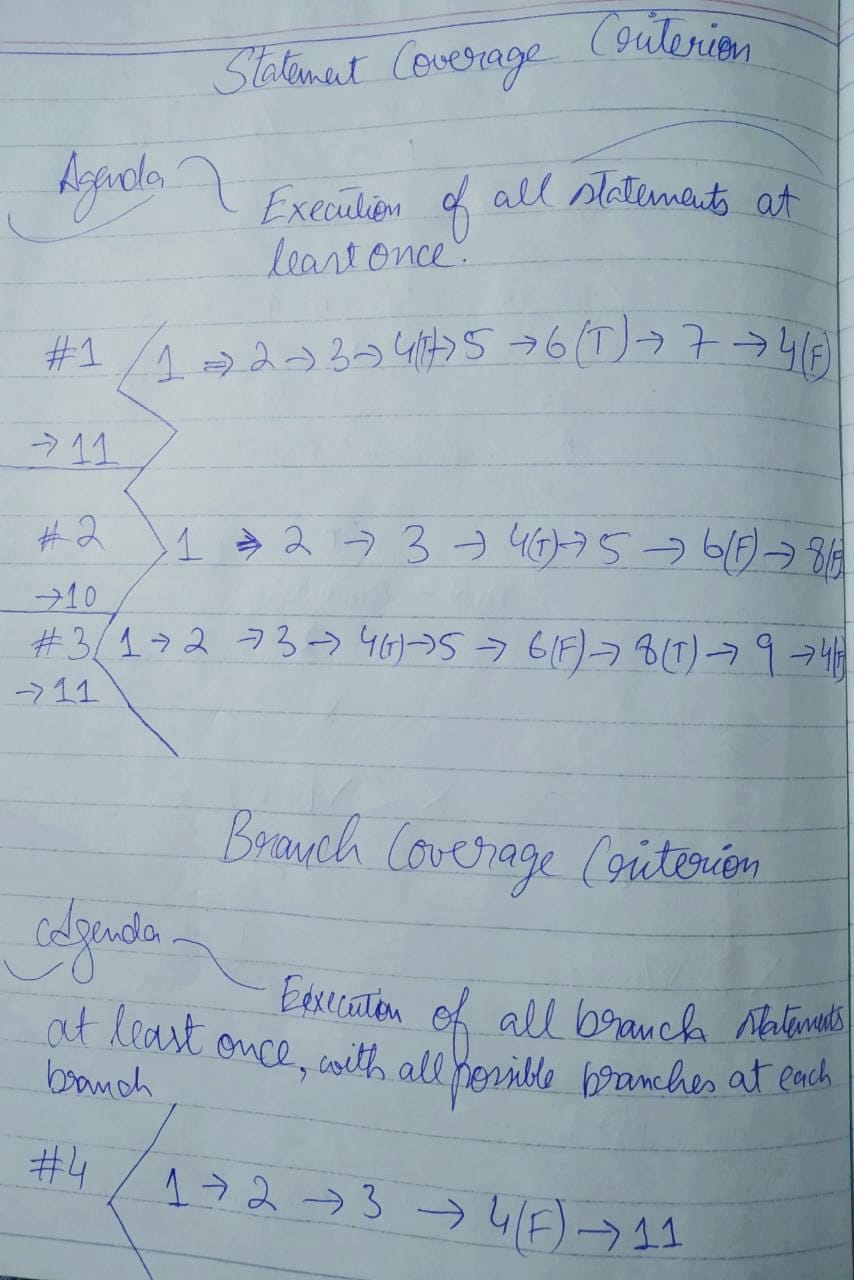 Statement Coverage Criterion
Agenda
Execution of all statements at
least once.
#1 1 ⇒ 2 → 3 → 4(T) → 5 → 6(T) → 7 → 4(F)
→ 11
#2 1 ⇒ 2 → 3 → 4(T) → 5 → 6(F) → 8(F)
→ 10
#3 1 → 2 → 3 → 4(T) → 5 → 6(F) → 8(T) → 9 → 4(F)
→ 11
Branch Coverage Criterion
Agenda
Execution of all branch statements
at least once, with all possible branches at each
branch
#4 1 → 2 → 3 → 4(F) → 11